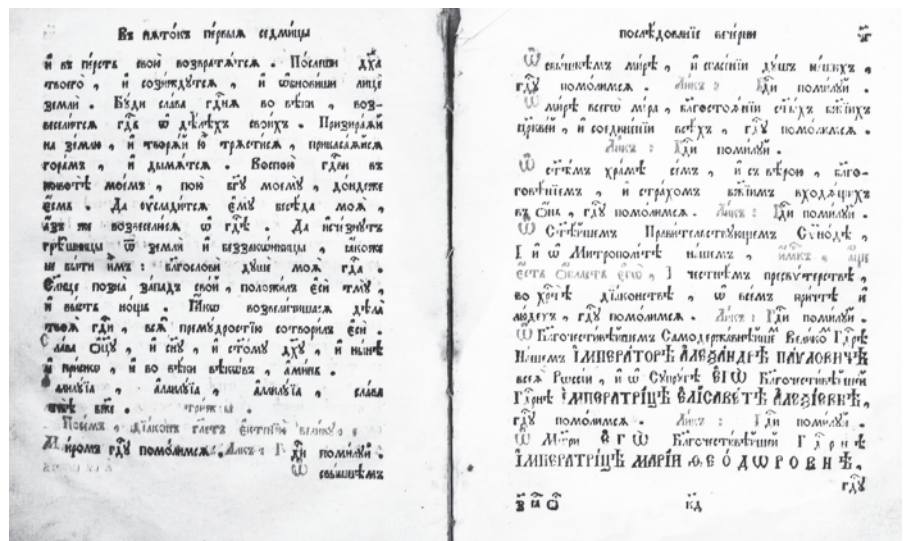 Въ пѧто́къ пе́рвыѧ седми́цы
и҆ въ пе́рсть свою̀ возвратѧ́тсѧ . По́слеши дх҃а
твоего̀ , и҆ сози́ждутсѧ , и҆ ѡ҆бнови́ши лицѐ
землѝ . Бу́ди сла́ва гдⷭ҇нѧ во вѣ́ки , воз-
весели́тсѧ гдⷭ҇ь ѡ҆ дѣ́лѣхъ свои́хъ . Призира́ѧй
на зе́млю , и҆ творѧ́й ю҆̀ трѧсти́сѧ , прикаса́ѧйсѧ
гора́мъ , и҆ дымѧ́тсѧ . Воспою̀ гдⷭ҇ви въ
животѣ̀ мое́мъ , пою̀ бг҃у моемꙋ̀ , до́ндеже
є҆́смь . Да ᲂу҆слади́тсѧ є҆мꙋ̀ бесѣ́да моѧ̀ ,
а҆́зъ же возвеселю́сѧ ѡ҆ гдⷭ҇ѣ . Да и҆сче́знутъ
грѣ̑шницы ѿ землѝ и҆ беззакѡ́нницы , ꙗ҆́коже
не бы́ти и҆̀мъ : благословѝ душѐ моѧ̀ гдⷭ҇а .
Со́лнце позна̀ за́падъ сво́й , положи́лъ є҆сѝ тмꙋ̀ ,
и҆ бы́сть но́щь . Ꙗ҆́кѡ возвели́чишасѧ дѣла̀
твоѧ̑ гдⷭ҇и , всѧ̑ премꙋ́дростїю сотвори́лъ є҆сѝ .
Сла́ва ѻ҆ц҃ꙋ̀ , и҆ сн҃ꙋ , и҆ ст҃о́мꙋ дх҃ꙋ , и҆ ны́нѣ
и҆ при́снѡ , и҆ во вѣ́ки вѣкѡ́въ , а҆ми́нь .
А҆ллилꙋ́їа , а҆ллилꙋ́їа , а҆ллилꙋ́їа , сла́ва
тебѣ̀ бж҃е . три́жды .
Посе́мъ , дїа́конъ гл҃етъ є҆ктенїю̀ вели́кꙋю :
Ми́ромъ гдⷭ҇ꙋ помо́лимсѧ . Ли́къ : Гдⷭ҇и поми́лꙋй .
Ѡ҆ свы́шнѣмъ
послѣ́дованїе вече́рни
Ѡ҆ свы́шнѣмъ ми́рѣ , и҆ спⷭ҇е́нїи дꙋ́шъ на́шихъ ,
гдⷭ҇ꙋ помо́лимсѧ . Ли́къ : Гдⷭ҇и поми́лꙋй .
Ѡ҆ ми́рѣ всегѡ̀ мі́ра , бл҃гостоѧ́нїи ст҃ы́хъ бж҃їихъ
цр҃кве́й , и҆ соедине́нїи всѣ́хъ , гдⷭ҇ꙋ помо́лимсѧ .
Ли́къ : Гдⷭ҇и поми́лꙋй .
Ѡ҆ ст҃ѣ́мъ хра́мѣ се́мъ , и҆ съ вѣ́рою , бл҃го-
говѣ́нїемъ , и҆ стра́хомъ бж҃їимъ входѧ́щихъ
въ ѻ҆́нь , гдⷭ҇ꙋ помо́лимсѧ . Ли́къ : Гдⷭ҇и поми́лꙋй .
Ѡ҆ Ст҃ѣ́йшемъ Прави́тельствꙋющемъ Сѵно́дѣ ,
І и҆ ѡ҆ Митрополі́тѣ на́шемъ , и҆́мⷬ҇къ . а҆́ще
є҆́сть ѻ҆́бласть є҆гѡ̀ , І честнѣ́мъ пресвѵ́терствѣ ,
во хрⷭ҇тѣ̀ дїа́конствѣ , ѡ҆ все́мъ при́чтѣ и҆
лю́дехъ , гдⷭ҇ꙋ помо́лимсѧ . Ли́къ : Гдⷭ҇и поми́лꙋй .
Ѡ҆ Благочести́вѣйшемъ Самодержа́внѣйшемъ Вели́комъ Гдⷭ҇рѣ
На́шемъ І҆МПЕРА́ТОРѢ А҆ЛЕѮА́НДРѢ ПА́ѴЛОВИЧѢ
всеѧ̀ Рѡссі́и , и҆ ѡ҆ Сꙋпрꙋ́гѣ Є҆ГѠ̀ Благочести́вѣйшей
Гдⷭ҇рнѣ І҆МПЕРАТРИ́ЦѢ Є҆ЛІСАВЕ́ТѢ А҆ЛЕѮІ́ЕВНѢ ,
гдⷭ҇ꙋ помо́лимсѧ . Ли́къ : Гдⷭ҇и поми́лꙋй .
Ѡ҆ Ма́тери Є҆ГѠ̀ Благочести́вѣйшей Гдⷭ҇рнѣ
І҆МПЕРАТРИ́ЦѢ МАРІ́И Ѳ҆ЕО́ДѠРОВНѢ ,
гдⷭ҇ꙋ
к҃д